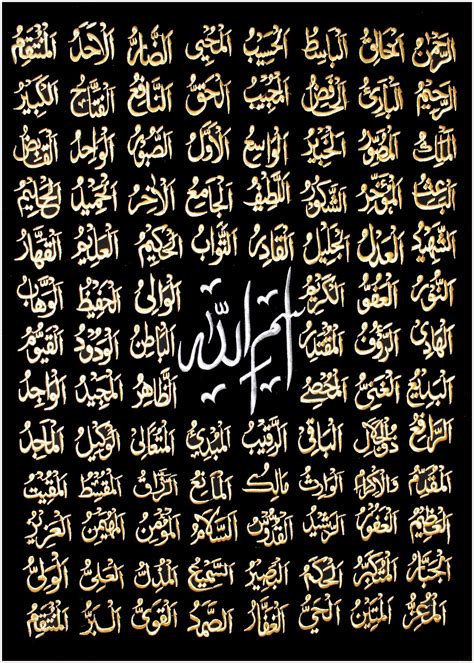 الرَّحْمٰنُ اَلْخَالِقُ اَلْبَاسِطُ اَلْحَسِيبُ اَلْمُحْيِي اَلضَّارُّ اَلْأَحَدُ اَلْمُنْتَقِمُ
الرَّحِيمُ اَلْبَارِئُ اَلْخَافِضُ اَلْمُجِيبُ اَلْحَقُّ اَلنَّافِعُ اَلْفَتَّاحُ اَلْكَبِيرُ
اَلْمَلِكُ اَلْمُصَوِّرُ اَلْخَبِيرُ اَلْوَاسِعُ اَلْأَوَّلُ اَلصَّبُورُ اَلْوَاحِدُ اَلْقَابِضُ
اَلْبَاعِثُ اَلْمُؤَخِّرُ اَلشَّكُورُ اَللَّطِيفُ اَلْجَامِعُ اَلْآخِرُ اَلْحَمِيدُ اَلْحَلِيمُ
اَلشَّهِيدُ اَلْعَدْلُ اَلْجَلِيلُ اَلْقَادِرُ اَلتَّوَّابُ اَلْحَكِيمُ اَلْعَلِيمُ اَلْقَهَّارُ
اَلنُّورُ اَلْعَفُوُّ اَلْكَرِيمُ اَلْوَالِي اَلْحَفِيظُ اَلْوَهَّابُ
اَلْهَادِي اَلرَّؤُفُ اَلْمُقْتَدِرُ اسم الله اَلْبَاطِنُ اَلْوَدُودُ اَلْقَيُّومُ
اَلْبَدِيعُ اَلْغَنِيُّ اَلْمُحْصِي اَلظَّاهِرُ اَلْمَجِيدُ اَلْوَاجِدُ
اَلرَّافِعُ ذُوالْجَلَالِ اَلْبَاقِي اَلرَّقِيبُ اَلْمُبْدِئُ اَلْمُتَعَالِي اَلْوَكِيلُ اَلْمَاجِدُ
اَلْمُقَدِّمُ وَالْاِكْرَامِ اَلْوَارِثُ مَالِكُ اَلْمَانِعُ اَلرَّزَّاقُ اَلْمُقْسِطُ اَلْمُقِيتُ
اَلْعَظِيمُ اَلْغَفُورُ اَلرَّشِيدُ اَلْقُدُّوسُ اَلسَّلَامُ اَلْمُؤْمِنُ اَلْمُهَيْمِنُ اَلْعَزِيزُ
اَلْجَبَّارُ اَلْمُتَكَبِّرُ اَلْحَكَمُ اَلْبَصِيرُ اَلسَّمِيعُ اَلْمُذِلُّ اَلْعَلِيُّ اَلْوَلِيُّ
اَلْمُعِزُّ اَلْمَتِينُ اَلْحَيُّ اَلْغَفَّارُ اَلصَّمَدُ اَلْقَوِيُّ اَلْبَرُّ اَلْمُنْتَقِمُ